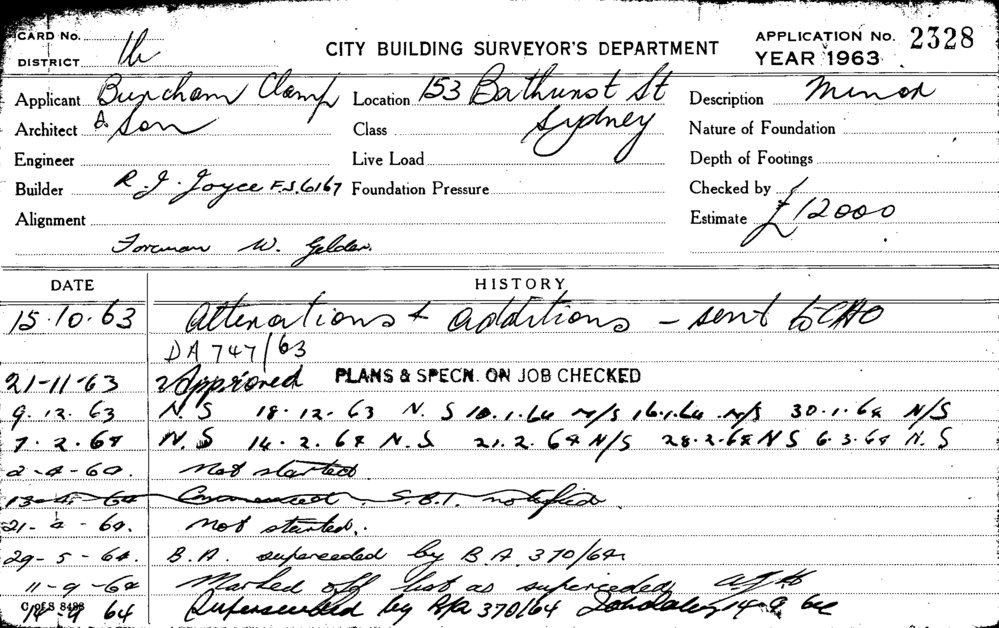 CARD No.
DISTRICT
CITY BUILDING SURVEYOR'S DEPARTMENT
APPLICATION No. 2328
YEAR 1963
Applicant Burcham Clamp Location 153 Bathurst St Description Minor
Architect & Son Class Sydney Nature of Foundation
Engineer Live Load Depth of Footings
Builder R. J. Joyce F.S.6167 Foundation Pressure Checked by
Alignment Estimate £12000
Foreman W. Gelder.
DATE HISTORY
15.10.63 Alterations + additions - sent to CHO
DA 747/63
21-11-63 Approved PLANS & SPECN. ON JOB CHECKED
9.12.63 N.S 18.12.63 N.S 10.1.64 N/S 16.1.64 N/S 30.1.64 N/S
7.2.64 N.S 14.2.64 N.S 21.2.64 N/S 28.2.64 N S 6.3.64 N.S
2-4-64. Not started
13-4-64 Commenced. S.B.I. notified
21-4-64. Not started.
29-5-64. B.A. superceeded by B.A. 370/64
11-9-64 Marked off list as superceded
14-9 64 Superseeded by B/A 370/64